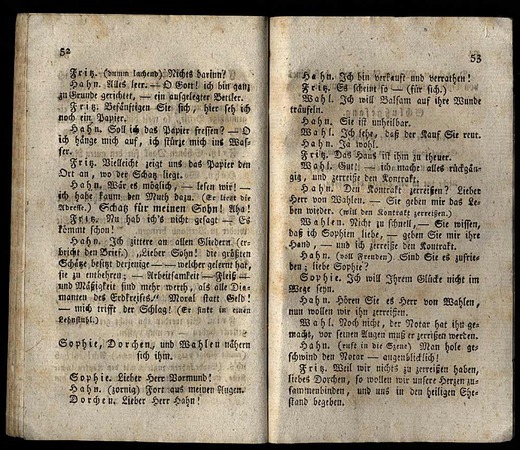 52
Fritz. (dumm lachend) Nichts darinn?
Hahn. Alles leer. — O Gott! ich bin ganz
zu Grunde gerichtet, — ein ausgelegter Bettler.
Fritz. Besänftigen Sie sich, hier seh ich
noch ein Papier.
Hahn. Soll ich das Papier fressen? — O
ich hänge mich auf, ich stürze mich ins Was-
ser.
Fritz. Vielleicht zeigt uns das Papier den
Ort an, wo der Schatz liegt.
Hahn. Wär es möglich, — lesen wir! —
ich habe kaum den Muth dazu. (Er liest die
Adresse.) Schatz für meinen Sohn! Aha!
Fritz. Nu hab ich's nicht gesagt — Es
kömmt schon!
Hahn. Ich zittere an allen Gliedern (er-
bricht den Brief.) „Lieber Sohn! die größten
Schätze besitzt derjenige — welcher gelernt hat,
sie zu entbehren; — Arbeitsamkeit — Fleiß —
und Mäßigkeit sind mehr werth, als alle Dia-
manten des Erdkreises." Moral statt Geld!
— mich trifft der Schlag! (Er sinkt in einen
Lehnstuhl.)
Sophie, Dorchen, und Wahlen nähern
sich ihm.
Sophie. Lieber Herr Vormund!
Hahn. (zornig) Fort aus meinen Augen.
Dorchen. Lieber Herr Hahn!
53
Hahn. Ich bin verkauft und verrathen!
Fritz. Es scheint so — (für sich.)
Wahl. Ich will Balsam auf ihre Wunde
träufeln.
Hahn. Sie ist unheilbar.
Wahl. Ich sehe, daß der Kauf Sie reut.
Hahn. Ja wohl.
Fritz. Das Haus ist ihm zu theuer.
Wahl. Gut! — ich mache alles rückgän-
gig, und zerreiße den Kontrakt.
Hahn. Den Kontrakt zerreißen? Lieber
Herr von Wahlen, — Sie geben mir das Le-
ben wieder. (will den Kontrakt zerreißen.)
Wahlen. Nicht zu schnell, — Sie wissen,
daß ich Sophien liebe, — geben Sie mir ihre
Hand, — und ich zerreiße den Kontrakt.
Hahn. (voll Freuden) Sind Sie es zufrie-
den; liebe Sophie?
Sophie. Ich will Ihrem Glücke nicht im
Wege seyn.
Hahn. Hören Sie es Herr von Wahlen,
nun wollen wir ihn zerreißen.
Wahl. Noch nicht, der Notar hat ihn ge-
macht, vor seinen Augen muß er zerrissen werden.
Hahn. (ruft in die Szene) Man hole ge-
schwind den Notar — augenblicklich!
Fritz. Weil wir nichts zu zerreißen haben,
liebes Dorchen, so wollen wir unsere Herzen zu-
sammenbinden, und uns in den heiligen Ehe-
stand begeben.